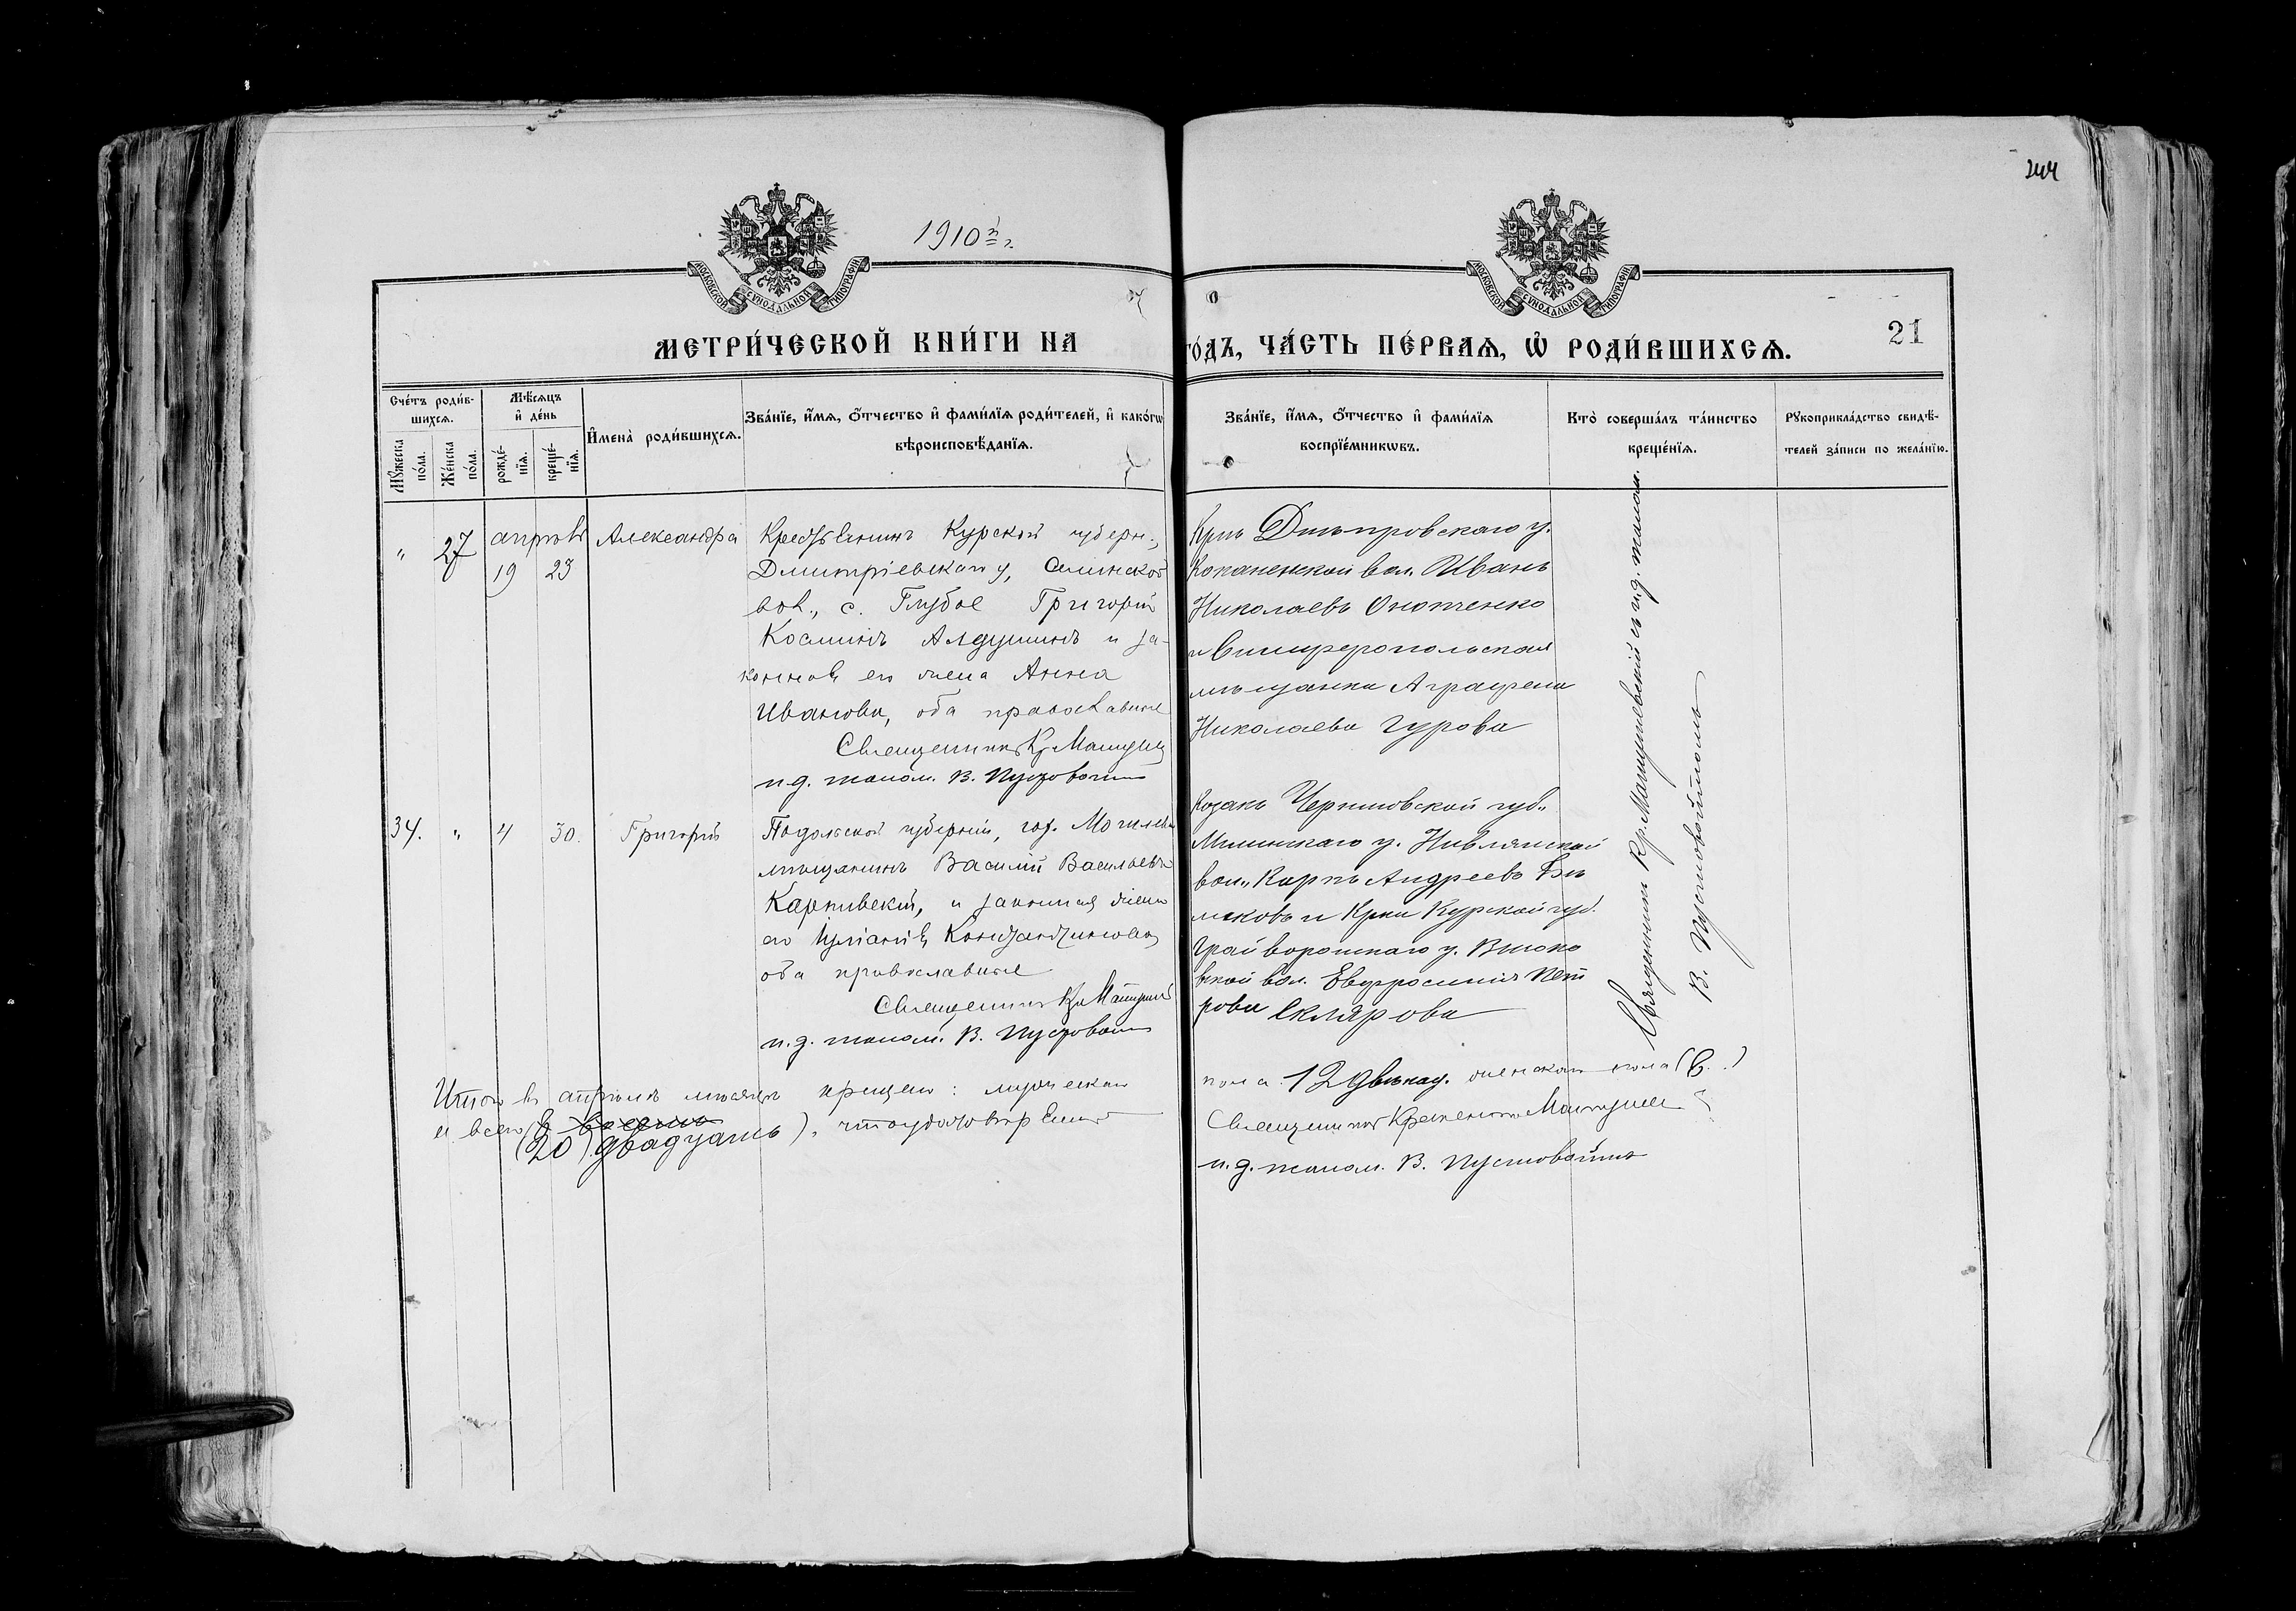 244
1910 г.
МОСКОВСКОЙ СѴНОДАЛЬНОЙ ТИПОГРАФІИ
МОСКОВСКОЙ СѴНОДАЛЬНОЙ ТИПОГРАФІИ
МЕТРИ́ЧЕСКОЙ КНИ́ГИ НА
ГО́ДЪ, ЧА́СТЬ ПЕ́РВАѦ, Ѡ҆ РОДИ́ВШИХСѦ.
21
Сче́тъ роди́в-
шихсѧ.
Мꙋ́жеска по́ла.
Же́нска по́ла.
Мѣ́сѧцъ
и҆ де́нь
рожде́-нїѧ.
креще́-нїѧ.
И҆мена̀ роди́вшихсѧ.
Зва́нїе, и҆́мѧ, ѻ҆́тчество и҆ фами́лїѧ роди́телей, и҆ како́гѡ
вѣроисповѣ́данїѧ.
Зва́нїе, и҆́мѧ, ѻ҆́тчество и҆ фами́лїѧ
воспрїе́мникѡвъ.
Кто̀ соверша́лъ та́инство
креще́нїѧ.
Рꙋкоприкла́дство свидѣ́-
телей за́писи по жела́нїю.
" 27 апрѣль 19 23 Александра
Крестьянинъ Курской губерн.,
Дмитріевскаго у,
вол., с. Глубое Григорій
Косминъ Алдушинъ и за-
конная его жена Анна
Иванова, оба православные
Священникъ Кр Мацуев
и. д. псалом. В. Пустовойт
Крнъ Днѣпровскаго у.
Копаненской вол. Иванъ
Николаевъ Онопченко
и Симферопольская
мѣщанка Аграфена
Николаева Гурова
34. " 4 30. Григорій
Подольской губерніи, гор. Могилева
мѣщанинъ Василій Васильевъ
Карпивскій, и законная жена
его Іуліанія Константинова,
оба православные
Священникъ Кр Мацуев
и. д. псалом. В. Пустовойт
Козакъ Черниговской губ.
у.
вол. Карпъ Андреевъ Бѣ
ликовъ и Крка Курской губ.
Грайворонскаго у. Высоко
вской вол. Евфросинія Пет
рова Склярова
Священникъ Кр. Мацуевскій съ и. д. псалом.
В. Пустовойтомъ
Итого въ апрѣлѣ мѣсяцѣ крещено: мужескаго
пола 12 двѣнад. женскаго пола (8.)
и всего
(20) двадцать), что удостовѣряемъ
Священникъ
и. д. псалом. В. Пустовойтъ